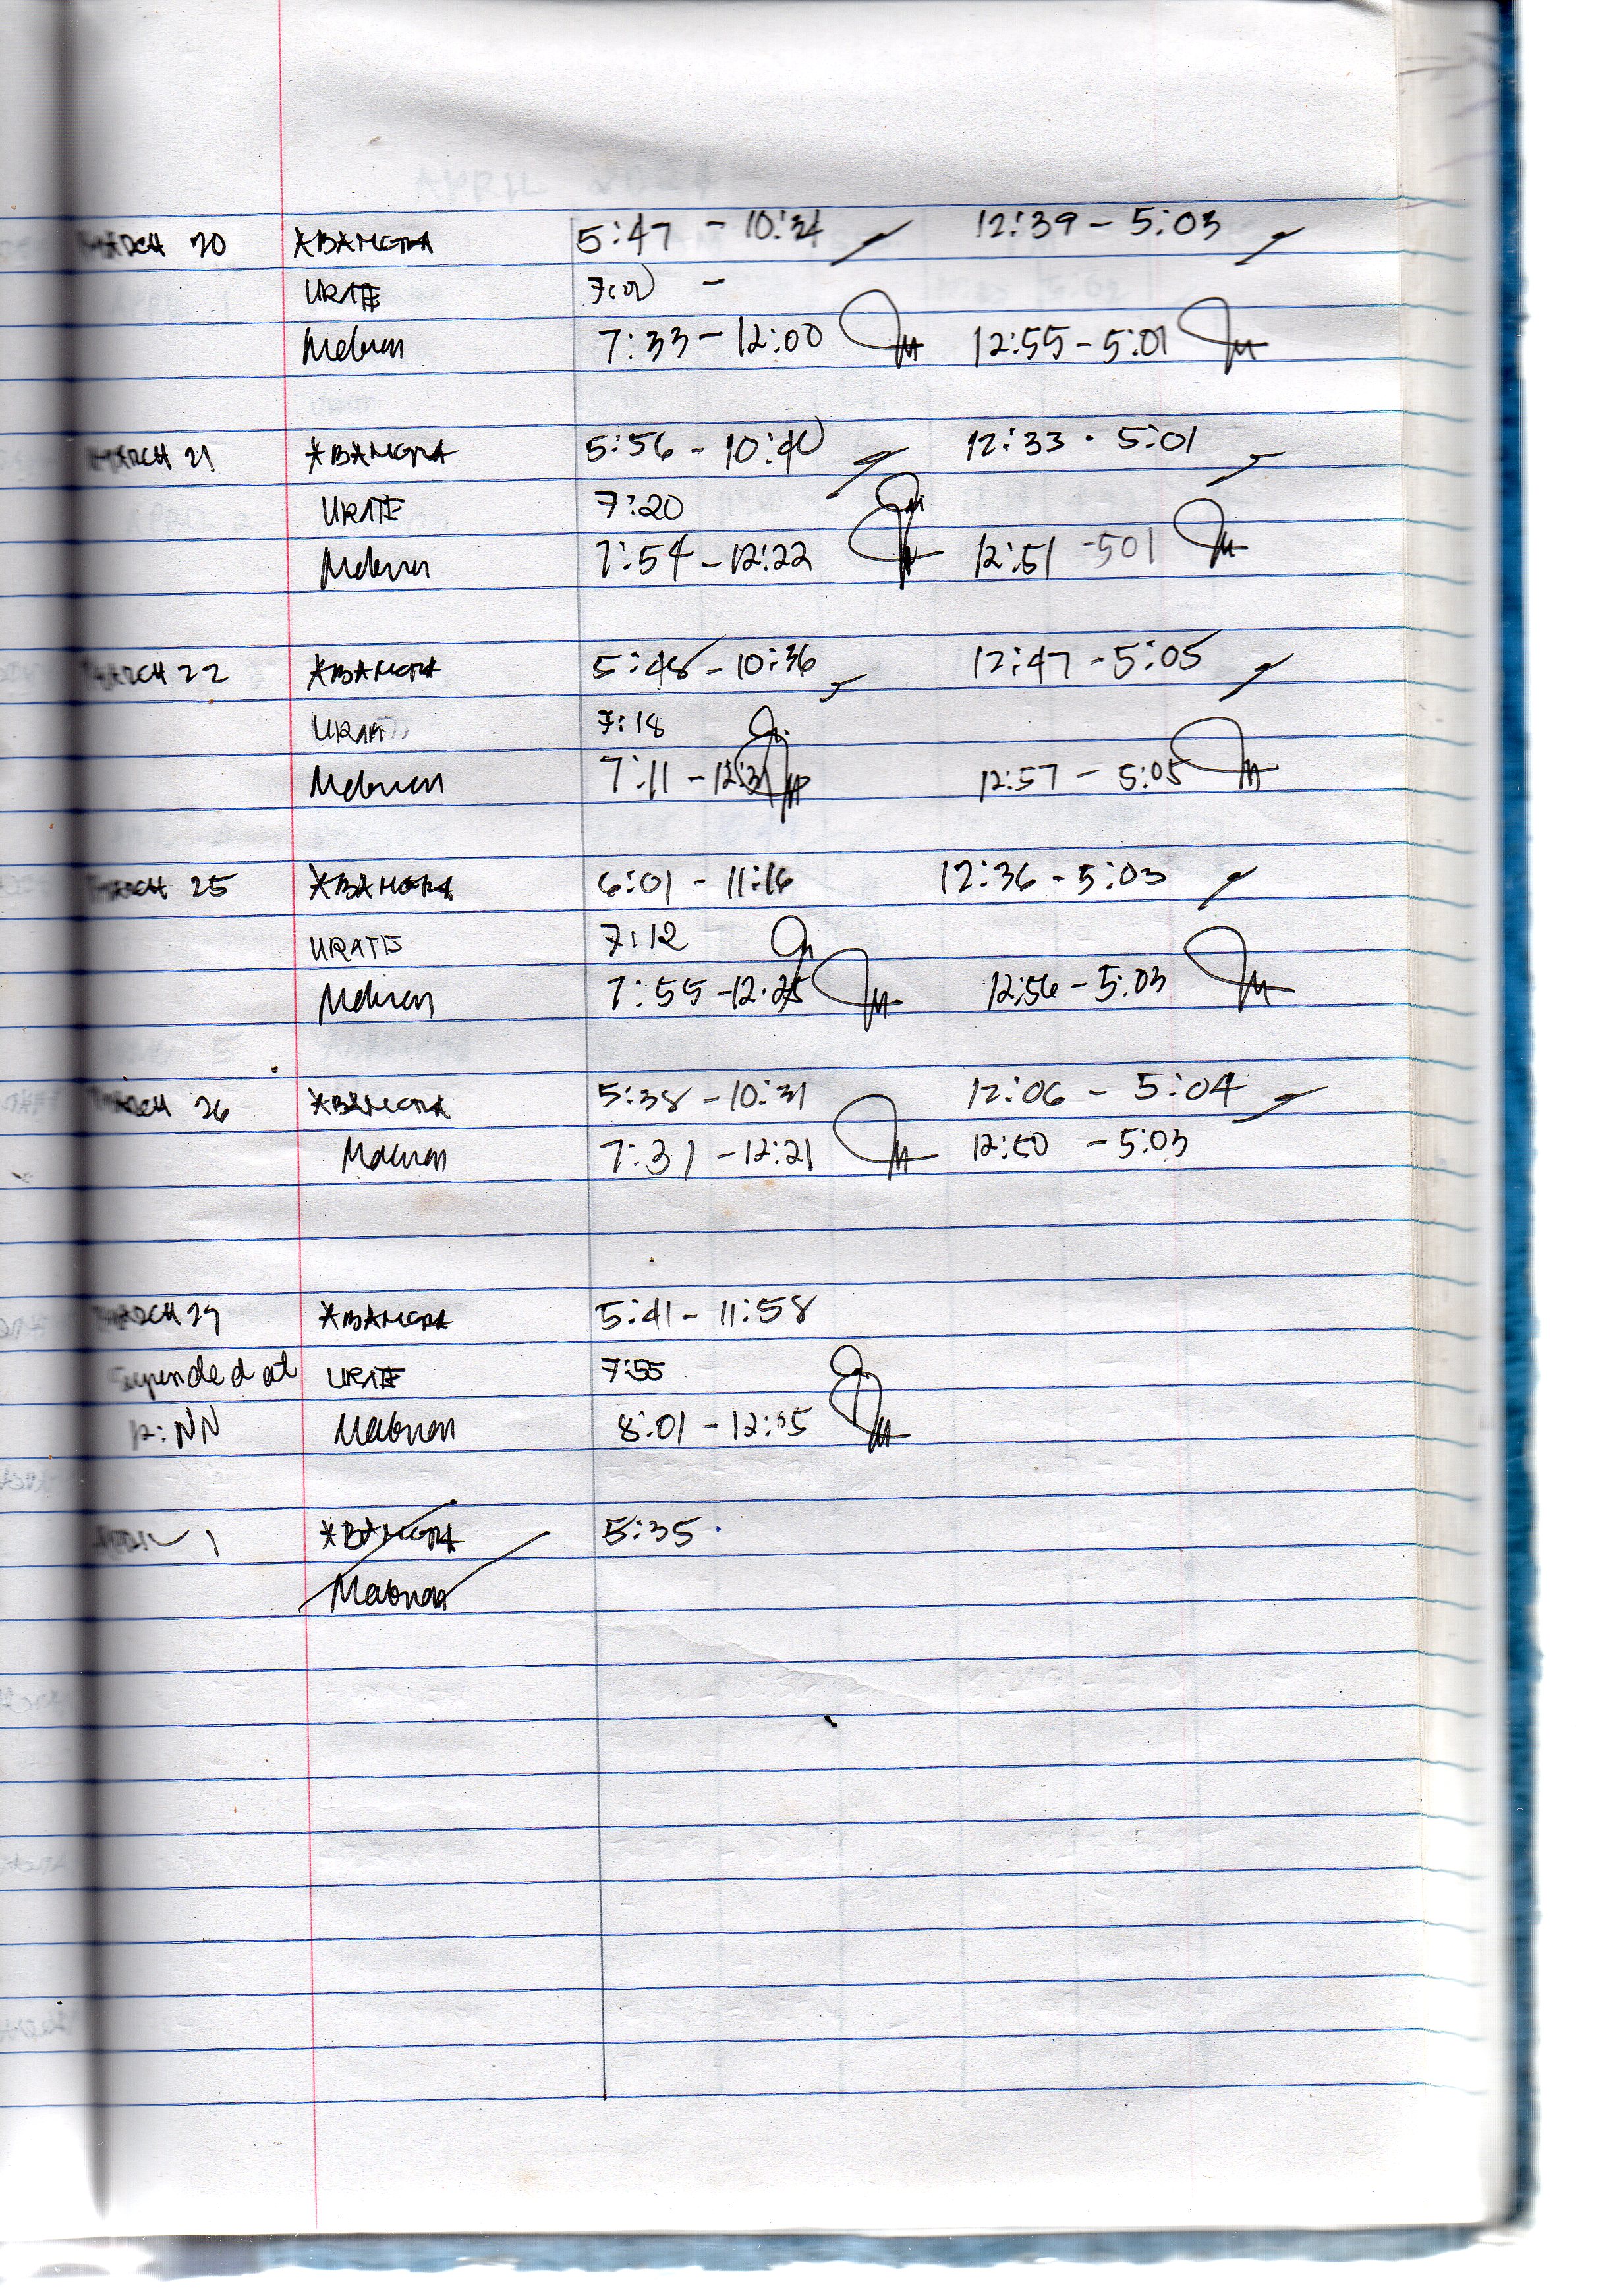 MARCH 20 ABAMGRA 5:47 - 10:34 12:39 - 5:03
URATE 7:
7:33 - 12:00 12:55 - 5:01
MARCH 21 ABAMGRA 5:56 - 10:40 12:33 - 5:01
URATE 7:20
7:54 - 12:22 12:51 - 501
MARCH 22 ABAMGRA 5:48 - 10:36 12:47 - 5:05
URATE 7:18
7:11 - 12:31 12:57 - 5:05
MARCH 25 ABAMGRA 6:01 - 11:16 12:36 - 5:03
URATE 7:12
7:55 - 12:25 12:56 - 5:03
MARCH 26 ABAMGRA 5:38 - 10:31 12:06 - 5:04
7:31 - 12:21 12:50 - 5:03
MARCH 27 ABAMGRA 5:41 - 11:58
Suspended at URATE 7:55
12:NN Mabunan 8:01 - 12:05
APRIL 1 ABAMGRA 5:35
Mabunan